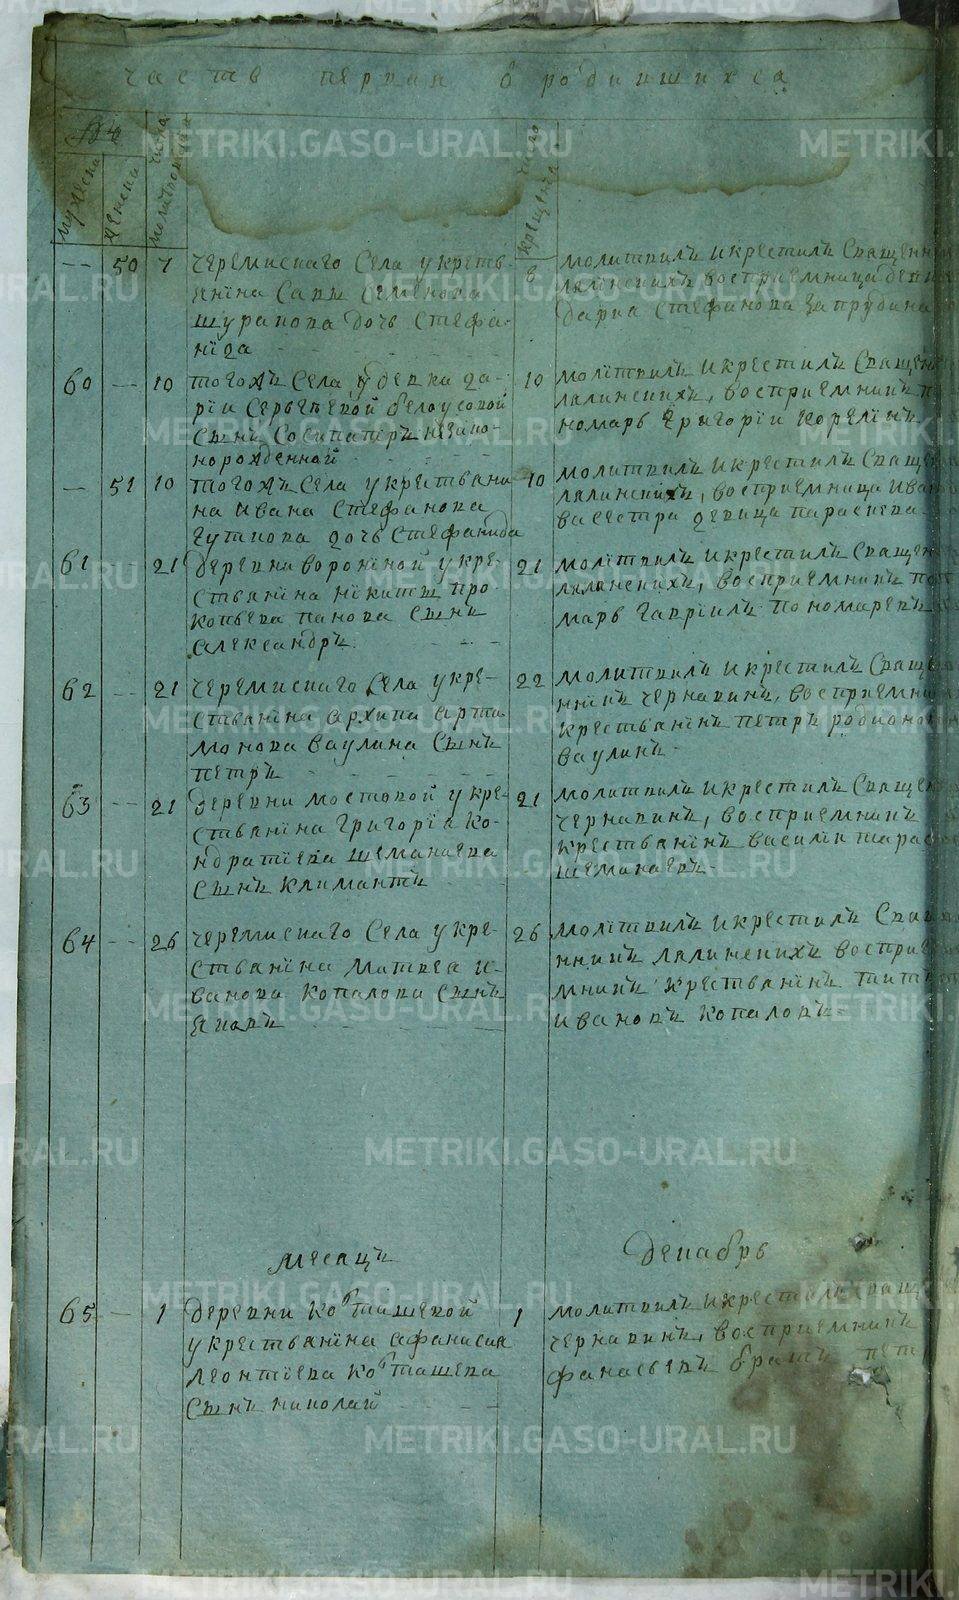 часть первая о родившихся
№
мужеска
женска
числа молитвования
число крещения
-- 50 7 Черемискаго Села у крестья-
янина Савы Семенова
Шурапова дочь Стефа-
нїда
8 молитвилъ и крестилъ Священни
Ляпинскихъ восприемница девица
Дарїа Стефанова Запрудина
60 -- 10 тогожъ Села у девки да-
рїи Сергѣевой белоусовой
Сынъ Сосипатръ незако-
норожденной
10 молїтвилъ и крестилъ Священ
Ляпинскихъ, восприемникъ по
номарь Григорїи Корелїнъ
-- 51 10 тогожъ Села у крестьяни
на Ивана Стефанова
Гуткова дочь Стефанида
10 молитвилъ и крестилъ Священ
Ляпинскихъ, восприемница Ива
ва Сестра девица параскева
61 -- 21 деревни воронїной у кре-
стьянїна Нїкиты про-
копьева панова Сынъ
Александръ
21 молїтвилъ и крестилъ Священ
Ляпинскихъ, восприемникъ поно
марь Гаврїилъ пономаревъ
62 -- 21 Черемискаго Села у кре-
стьянїна Архипа Арта
монова Ваулина Сынъ
петръ
22 молитвилъ и крестилъ Священ
нїкъ Чернавинъ, восприемни
крестьянїнъ петръ родионовъ
ваулинъ
63 -- 21 деревни мостовой у кре-
стьянїна Григорїа Ко-
ндратїева Шеманаева
Сынъ Климантъ
21 молитвилъ и крестилъ Священ
Чернавинъ, восприемникъ
крестьянїнъ василїи тарасо
Шеманаевъ
64 -- 26 Черемискаго Села у кре-
стьянїна Матвеа И-
ванова Копалова Сынъ
Яковъ
26 молїтвилъ и крестилъ Свяще
нникъ Ляпинскихъ восприе
мникъ крестьянїнъ титъ
Ивановъ Копаловъ
месяцъ декабрь
65 -- 1 деревни Ковташевой
у крестьянїна Афанасиа
Леонтїева Ковташева
Сынъ николай
1 молитвилъ и крестилъ Свящ
Чернавинъ, восприемникъ
фанасьевъ братъ пет
METRIKI.GASO-URAL.RU